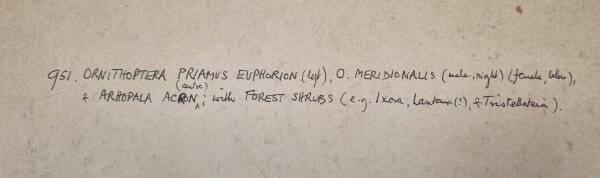 951. ORNITHOPTERA PRIAMUS EUPHORION (left), O. MERIDIONALIS (male, right) (female, below),
& ARHOPALA ACRON (centre); with FOREST SHRUBS (e.g. Ixora, Lantana(!), & Tristellateia).